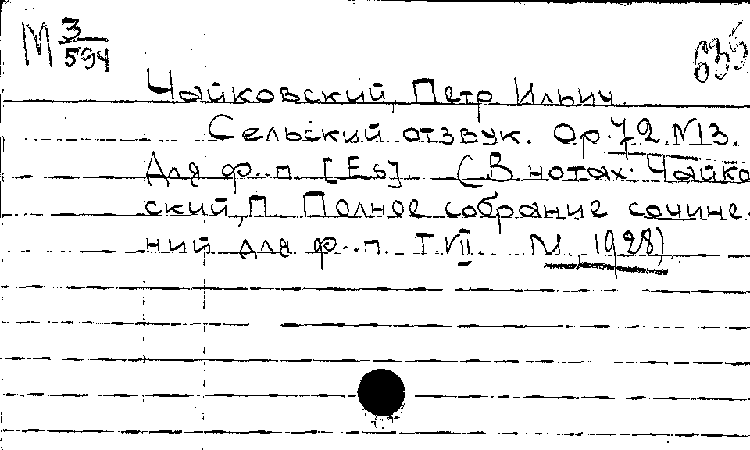 М 3/594
635
Чайковский, Петр Ильич.
Сельский отзвук. Op. 72. №13.
Для ф.-п. [Es] (В нотах: Чайко
ский, П. Полное собрание сочине-
ний для ф.-п. Т. VII. М., 1928)